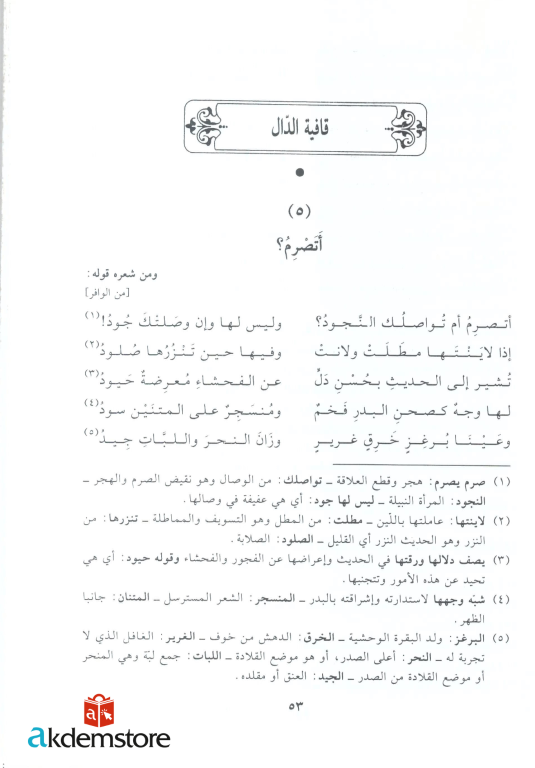 قافية الدّال
(٥)
أَتَصْرِمُ؟
ومن شعره قوله:
[من الوافر]
أتـصـرمُ أم تُـواصلُـك الـنَّـجـودُ؟ ولـيـس لـهـا وإن وصَـلـتْـكَ جُـودُ!(١)
إذا لايَـنْـتَـهـا مـطَـلَـتْ ولانـتْ وفـيـهـا حـيـن تَـنْـزُرُهـا صُـلـودُ(٢)
تُـشـيـر إلى الـحـديـثِ بـحُـسْـنِ دَلٍّ عـن الـفـحـشـاءِ مُـعـرِضـةٌ حَـيـودُ(٣)
لـهـا وجـهٌ كـصـحـنِ الـبـدرِ فَـخـمٌ ومُـنـسَـجِـرٌ عـلـى الـمـتـنَـيْـن سـودُ(٤)
وعَـيْـنَـا بُـرغـزٍ خَـرِقٍ غَـريـرٍ وزَانَ الـنـحـرَ والـلـبَّـاتِ جِـيـدُ(٥)
(١) صرم يصرم: هجر وقطع العلاقة ــ تواصلك: من الوصال وهو نقيض الصرم والهجر ــ
النجود: المرأة النبيلة ــ ليس لها جود: أي هي عفيفة في وصالها.
(٢) لاينتها: عاملتها باللّين ــ مطلت: من المطل وهو التسويف والمماطلة ــ تنزرها: من
النزر وهو الحديث النزر أي القليل ــ الصلود: الصلابة.
(٣) يصف دلالها ورقتها في الحديث وإعراضها عن الفجور والفحشاء وقوله حيود: أي هي
تحيد عن هذه الأمور وتتجنبها.
(٤) شبّه وجهها لاستدارته وإشراقته بالبدر ــ المنسجر: الشعر المسترسل ــ المتنان: جانبا
الظهر.
(٥) البرغز: ولد البقرة الوحشية ــ الخرق: الدهش من خوف ــ الغرير: الغافل الذي لا
تجربة له ــ النحر: أعلى الصدر، أو هو موضع القلادة ــ اللبات: جمع لبّة وهي المنحر
أو موضع القلادة من الصدر ــ الجيد: العنق أو مقلده.
٥٣
akdemstore